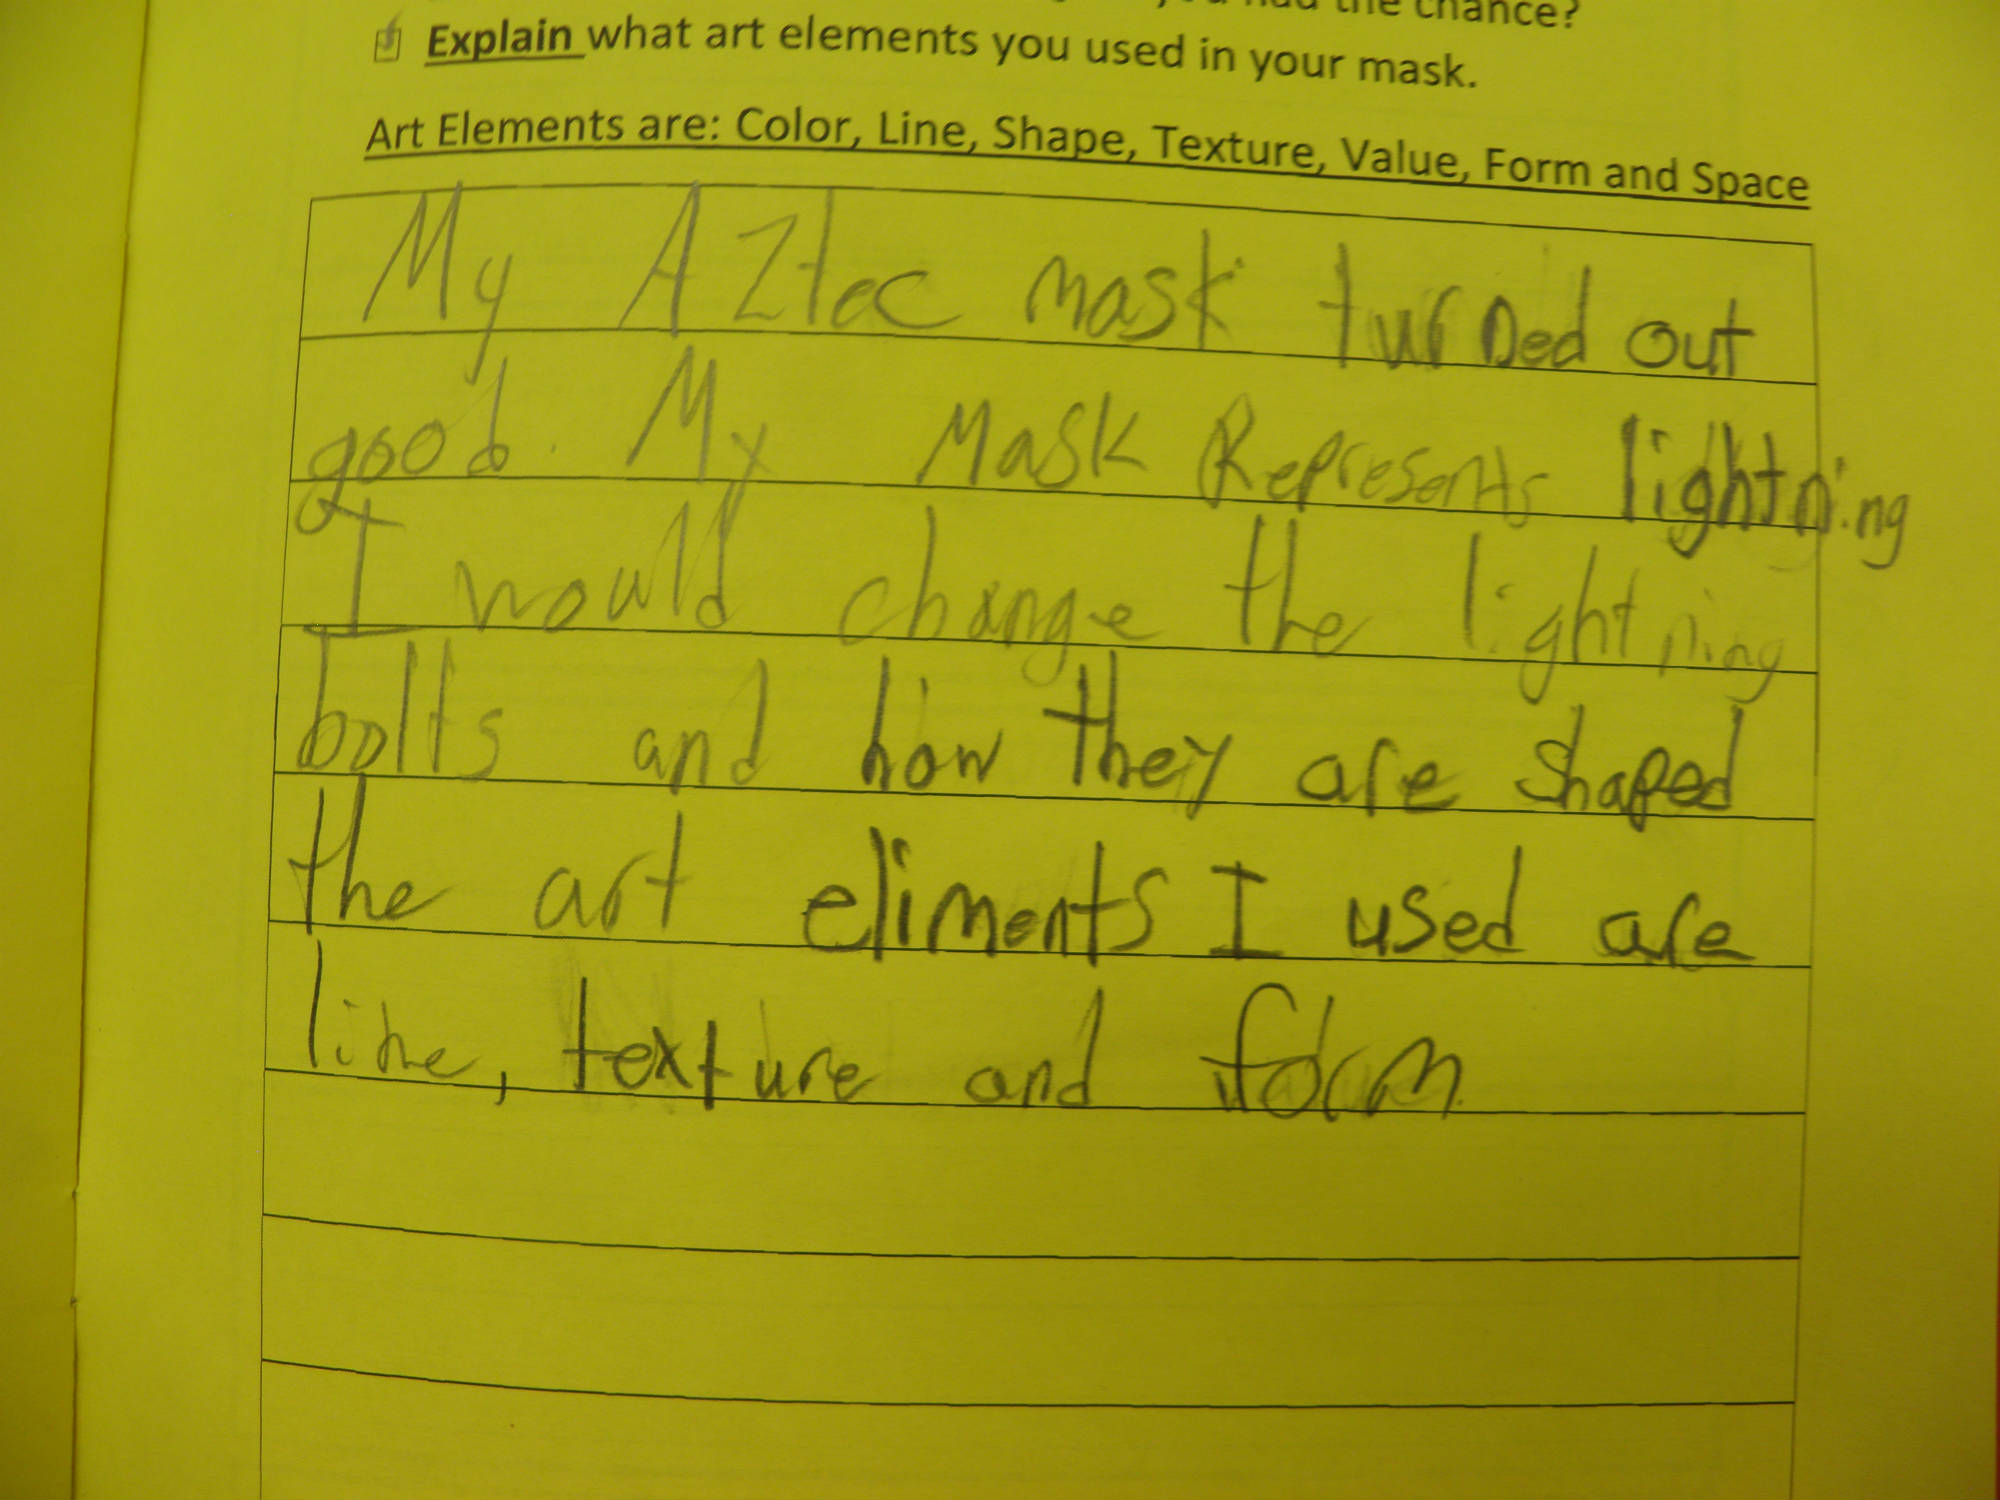 the chance?
Explain what art elements you used in your mask.
Art Elements are: Color, Line, Shape, Texture, Value, Form and Space
My Aztec mask turned out
good. My Mask Represents lightning
I would change the lightning
bolts and how they are shaped
the art eliments I used are
line, texture and form.